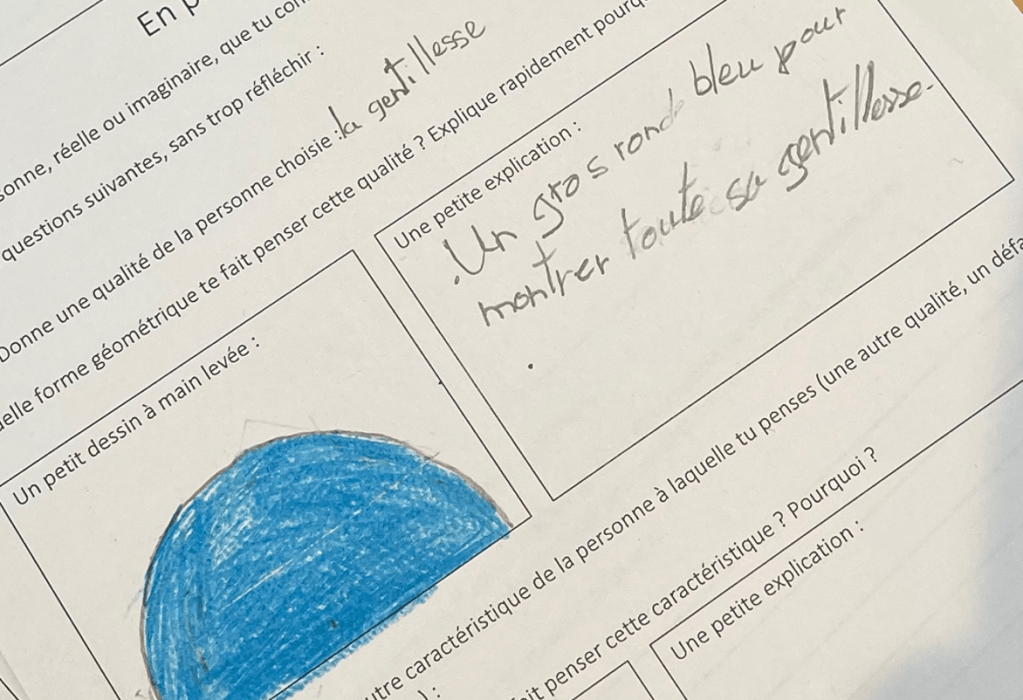 En p
onne, réelle ou imaginaire, que tu con
questions suivantes, sans trop réfléchir :
Donne une qualité de la personne choisie : la gentillesse
elle forme géométrique te fait penser cette qualité ? Explique rapidement pourq
Un petit dessin à main levée :
Une petite explication :
Un gros rond bleu pour
montrer toute sa gentillesse.
utre caractéristique de la personne à laquelle tu penses (une autre qualité, un défa
) :
it penser cette caractéristique ? Pourquoi ?
Une petite explication :